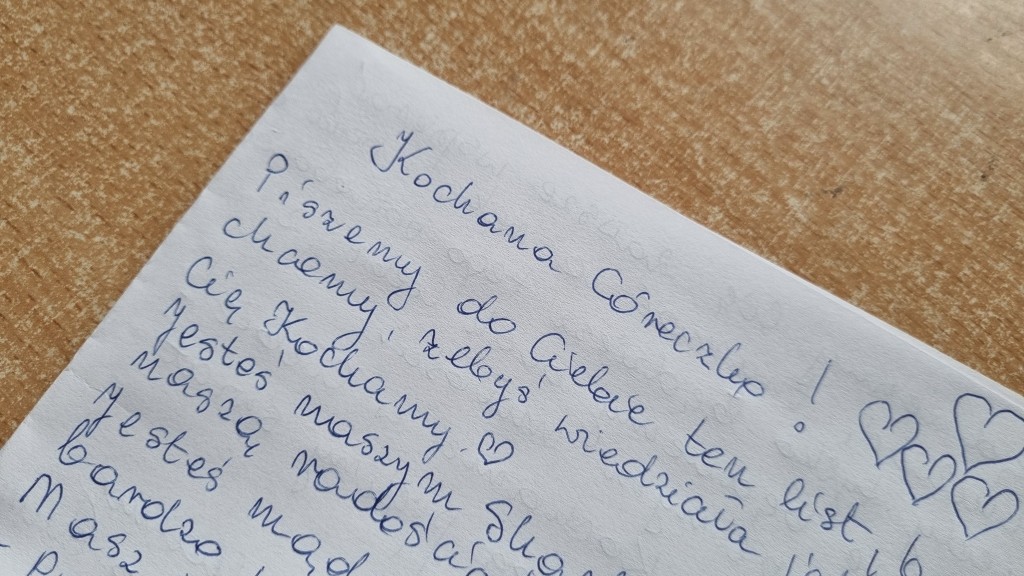 Kochana Córeczko!
Piszemy do Ciebie ten list b
chcemy, żebyś wiedziała
Cię Kochamy. ♡
Jesteś naszym Ska
naszą radością
Jesteś mąd
bardzo
Masz